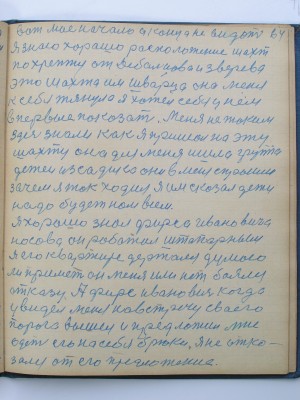 вот мае начало а концу не видоть 64
Я знаю хорошо расположение шахт
по хрепту от Дебальцова и зверева
это шахта им шварца она меня
к себя тянула я хотел себя у нём
в первые показат. Меня не таким
здесь знали как я пришол на эту
шахту она для меня шила группа
детей из садика они в меня спросили
зачем я так ходил я им сказал дети
надо будет нам всем.
Я хорошо знал фирса ивановича
носова он работал штапарным
я его квартире держался думаю
ли примет он меня или нет боялся
отказу. А фирс иванович когда
увидел меня на встречу сваего
порога вышел и предложил мне
одеть его на себя брюки, я не отко-
зался от его предложение.